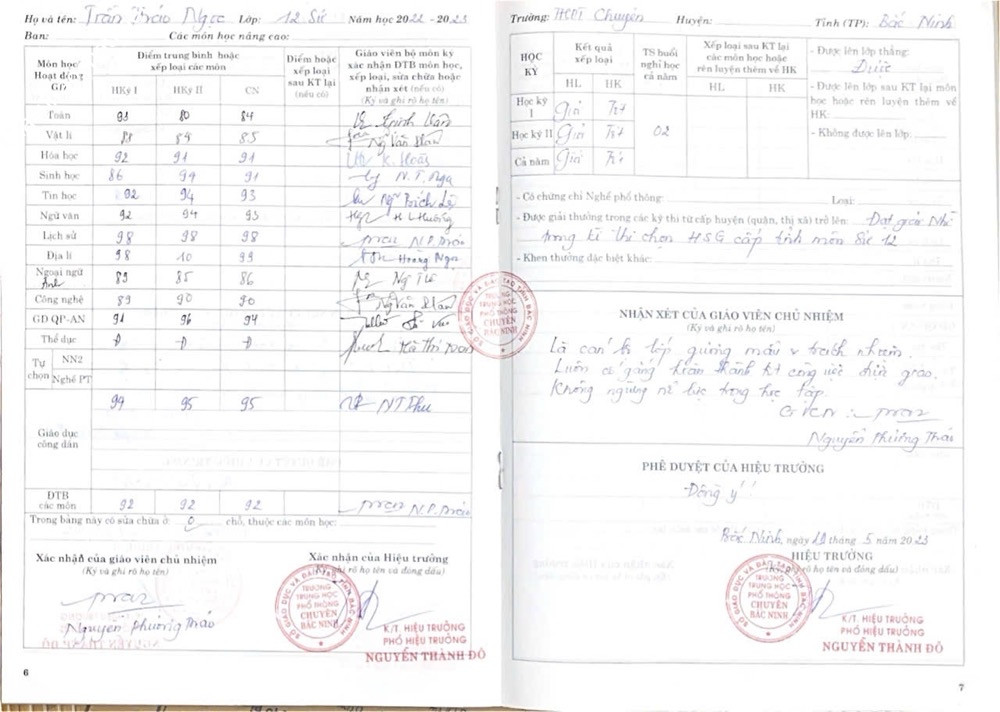 Họ và tên: Trần Thảo Ngọc Lớp: 12 Sử Năm học 2022 - 2023
Ban: Các môn học nâng cao:
Môn học/ Hoạt động GD
Điểm trung bình hoặc xếp loại các môn
HKỳ I HKỳ II CN
Điểm hoặc xếp loại sau KT lại (nếu có)
Giáo viên bộ môn ký xác nhận ĐTB môn học, xếp loại, sửa chữa hoặc nhận xét (nếu có)
(Ký và ghi rõ họ tên)
Toán 80 84
Vật lí 84 85 Ng Văn
Hóa học 92 91 91 K. Hoàn
Sinh học 86 91 N.T. Nga
Tin học 92 94 93 Bích
Ngữ văn 92 94 93 H L Hương
Lịch sử 98 98 98 N.P. Thảo
Địa lí 98 10 99 Hoàng Nga
Ngoại ngữ Anh 83 85 86
Công nghệ 89 90 90 Ng Văn
GD QP-AN 91 96 94
Thể dục Đ Đ Đ Hà Thị
Tự chọn NN2
Nghề PT
Giáo dục công dân 95 95 NT Thu
ĐTB các môn 92 92 92 N.P. Thảo
Trong bảng này có sửa chữa ở: 0 chỗ, thuộc các môn học:
Xác nhận của giáo viên chủ nhiệm
(Ký và ghi rõ họ tên)
Nguyễn Phương Thảo
Xác nhận của Hiệu trưởng
(Ký, ghi rõ họ tên và đóng dấu)
SỞ GIÁO DỤC VÀ ĐÀO TẠO TỈNH BẮC NINH
TRƯỜNG
TRUNG HỌC
PHỔ THÔNG
CHUYÊN
BẮC NINH
K/T. HIỆU TRƯỞNG
PHÓ HIỆU TRƯỞNG
NGUYỄN THÀNH ĐÔ
6
SỞ GIÁO DỤC VÀ ĐÀO TẠO TỈNH BẮC NINH
TRƯỜNG
TRUNG HỌC
PHỔ THÔNG
CHUYÊN
BẮC NINH
Trường: THPT Chuyên Huyện: Tỉnh (TP): Bắc Ninh
HỌC KỲ
Kết quả xếp loại
HL HK
TS buổi nghỉ học cả năm
Xếp loại sau KT lại các môn học hoặc rèn luyện thêm về HK
HL HK
Học kỳ I Giỏi Tốt
Học kỳ II Giỏi Tốt 02
Cả năm Giỏi Tốt
- Được lên lớp thẳng:
Được
- Được lên lớp sau KT lại môn học hoặc rèn luyện thêm về HK:
- Không được lên lớp:
- Có chứng chỉ Nghề phổ thông: Loại:
- Được giải thưởng trong các kỳ thi từ cấp huyện (quận, thị xã) trở lên: Đạt giải Nhì
trong kì thi chọn HSG cấp tỉnh môn Sử 12
- Khen thưởng đặc biệt khác:
NHẬN XÉT CỦA GIÁO VIÊN CHỦ NHIỆM
(Ký và ghi rõ họ tên)
Là cán bộ lớp gương mẫu & trách nhiệm.
Luôn cố gắng hoàn thành tốt công việc được giao.
Không ngừng nỗ lực trong học tập.
GVCN:
Nguyễn Phương Thảo
PHÊ DUYỆT CỦA HIỆU TRƯỞNG
Đồng ý!
Bắc Ninh, ngày tháng 5 năm 2023
HIỆU TRƯỞNG
(Ký, ghi rõ họ tên và đóng dấu)
SỞ GIÁO DỤC VÀ ĐÀO TẠO TỈNH BẮC NINH
TRƯỜNG
TRUNG HỌC
PHỔ THÔNG
CHUYÊN
BẮC NINH
K/T. HIỆU TRƯỞNG
PHÓ HIỆU TRƯỞNG
NGUYỄN THÀNH ĐÔ
7